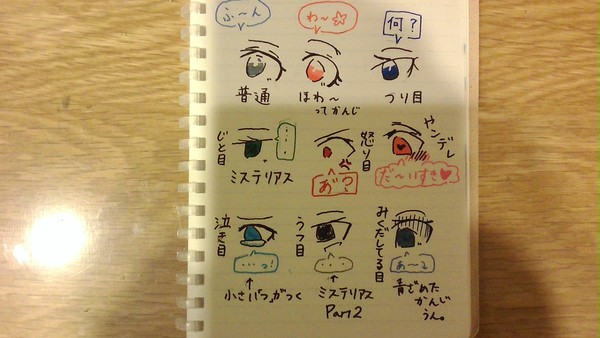 ふ〜ん
わ〜☆
何?
普通
ほわ〜
ってかんじ
つり目
じと目
…
ミステリアス
怒り目
あ゛?
ヤンデレ
だ〜いすき♥
泣き目
…っ!
小さい「つ」がつく
うつ目
…
ミステリアス
Part2
みくだしてる目
あ〜?
青ざめた
かんじ
うん。